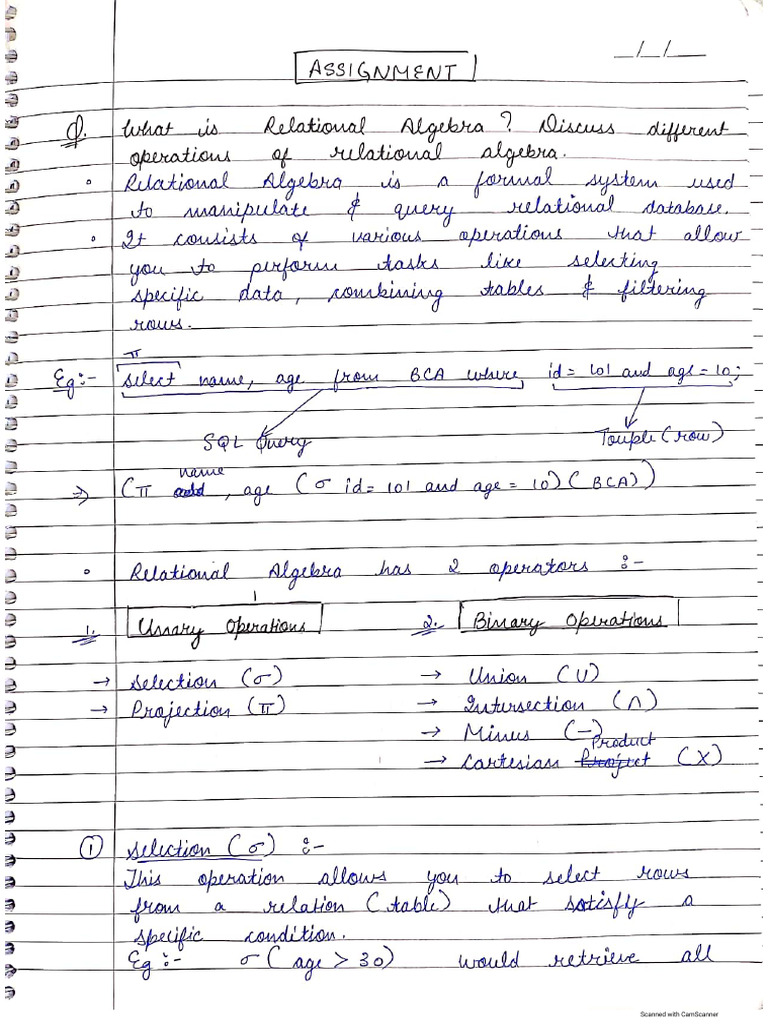 _/_/__
ASSIGNMENT
Q. What is Relational Algebra? Discuss different
operations of relational algebra.
• Relational Algebra is a formal system used
to manipulate & query relational database.
• It consists of various operations that allow
you to perform tasks like selecting
specific data, combining tables & filtering
rows.
π
Eg:- select name, age from BCA where id = 101 and age = 10;
SQL Query Touple (row)
name
⇒ (π , age (σ id = 101 and age = 10) (BCA))
• Relational Algebra has 2 operators :-
1. Unary Operations 2. Binary Operations
→ Selection (σ) → Union (U)
→ Projection (π) → Intersection (∩)
→ Minus (-)
Product
→ Cartesian Project (X)
① Selection (σ) :-
This operation allows you to select rows
from a relation (table) that satisfy a
specific condition.
Eg :- σ (age > 30) would retrieve all
Scanned with CamScanner